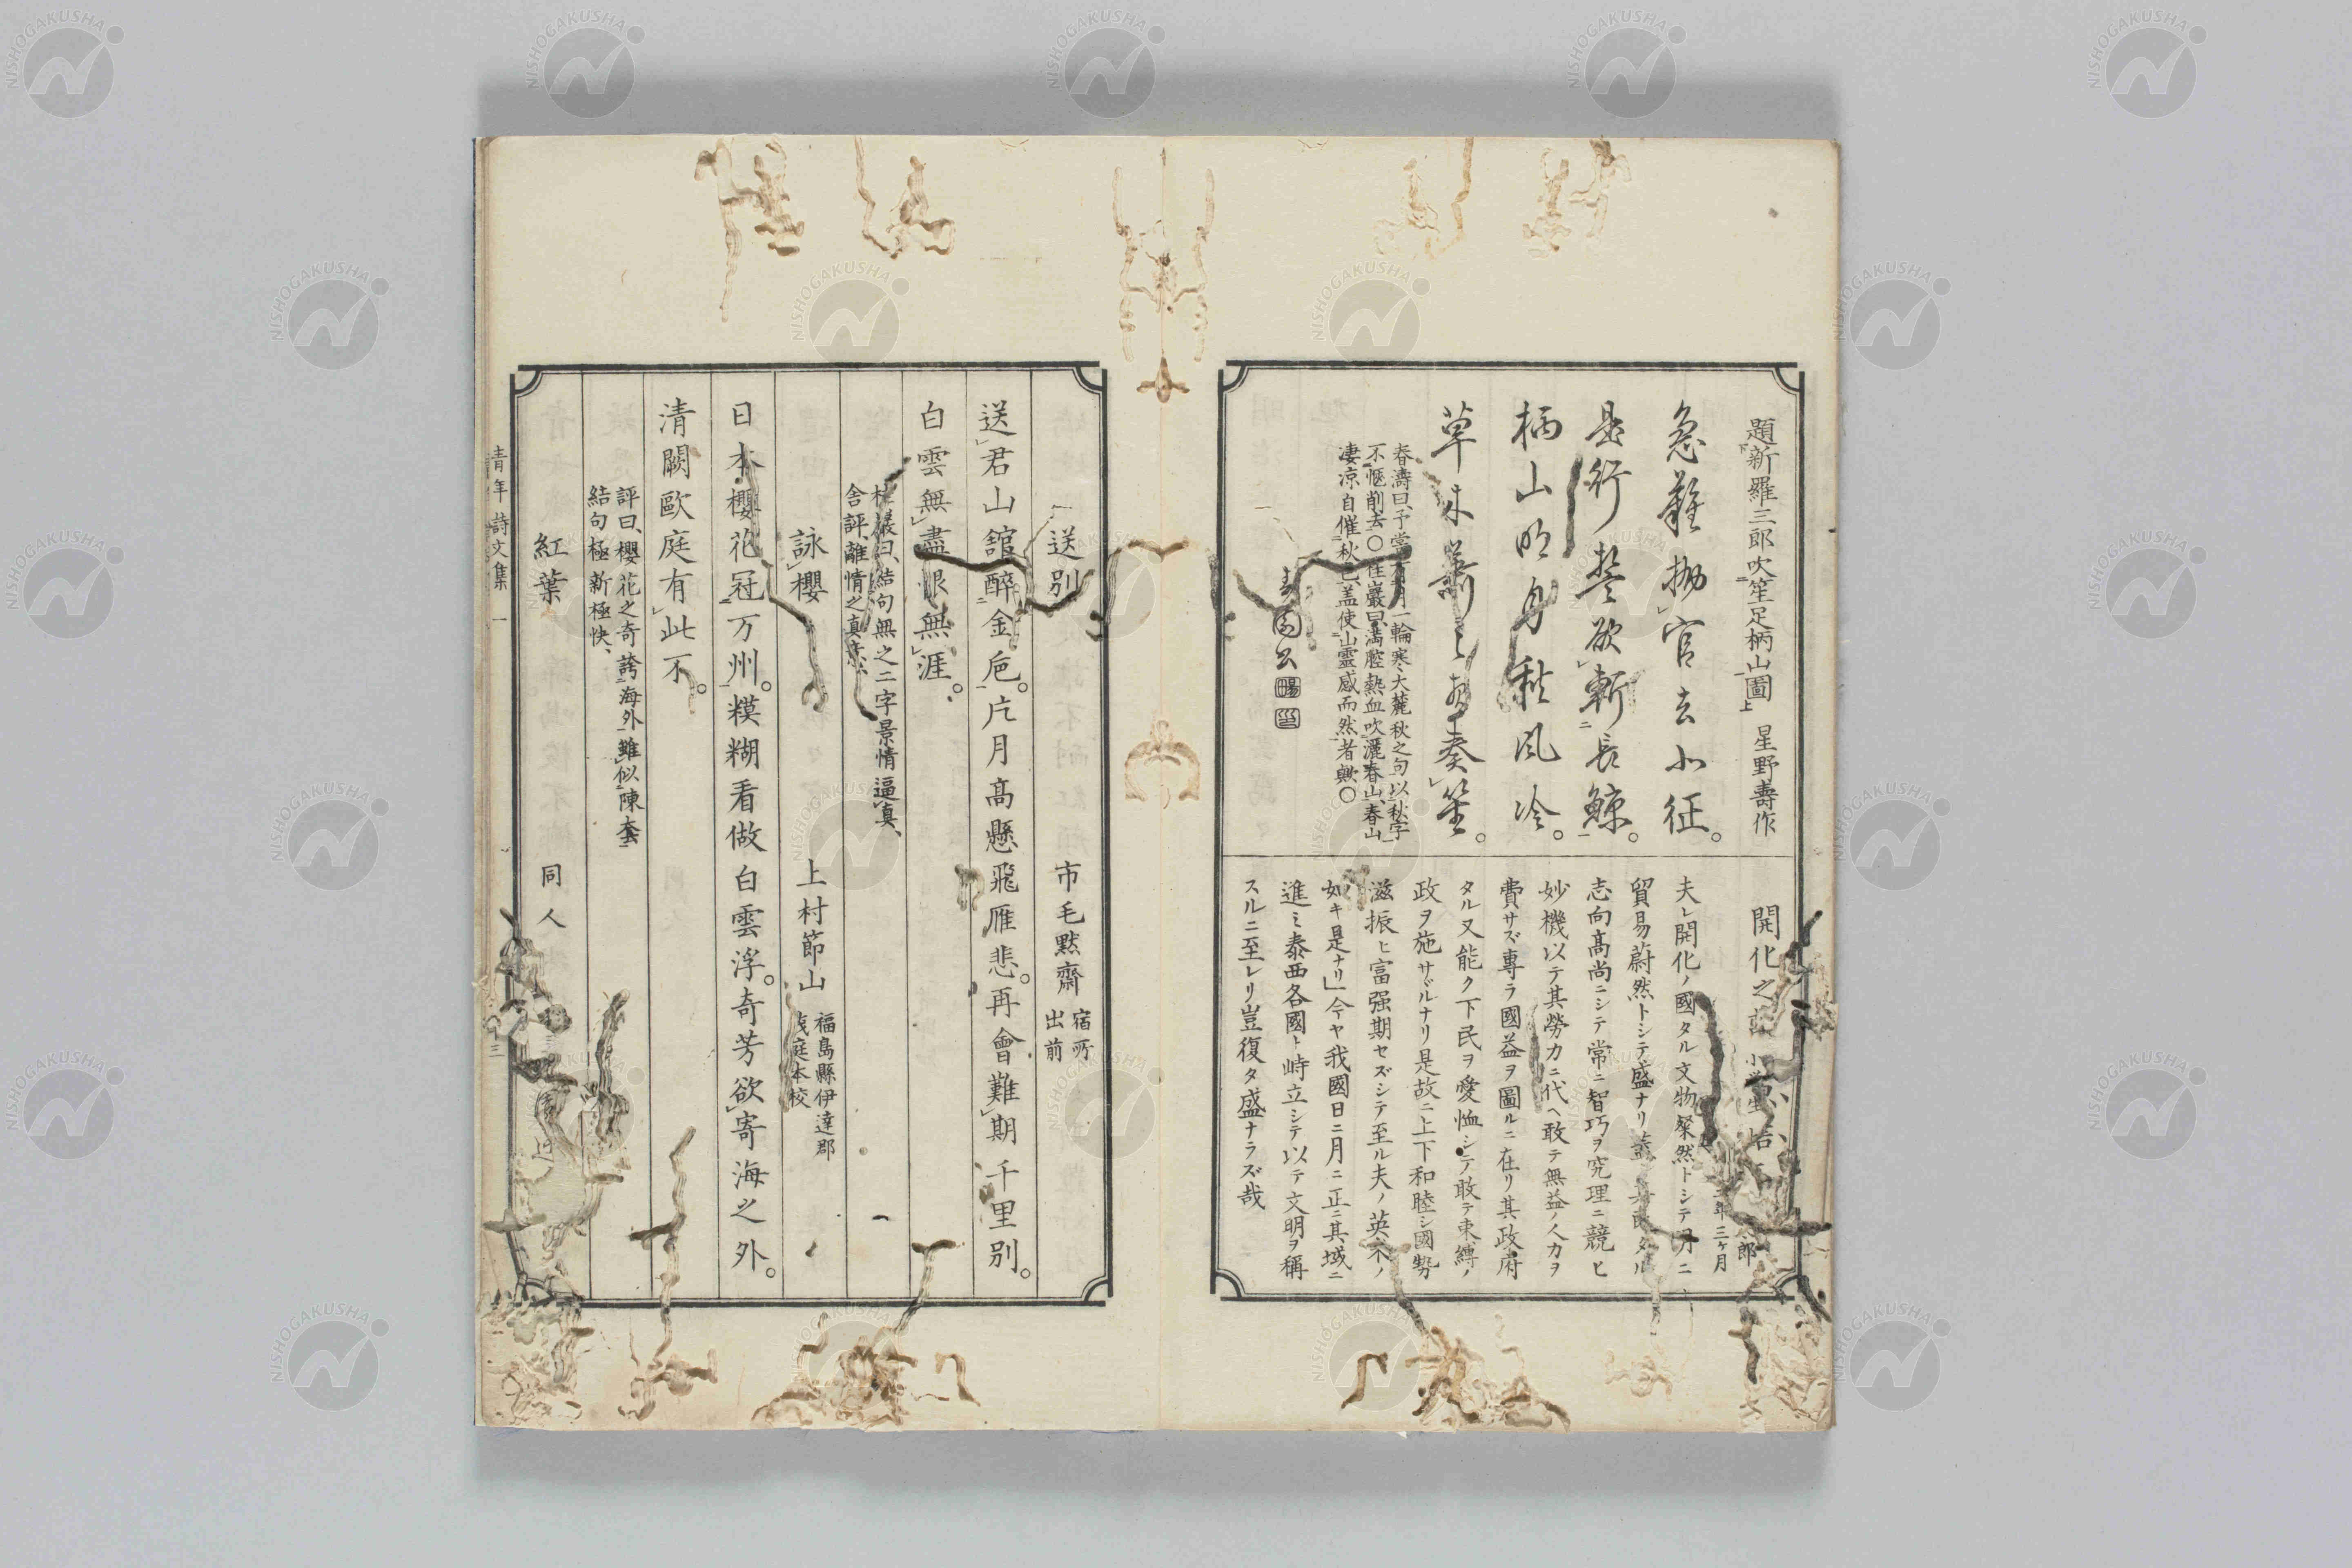 題新羅三郎吹笙足柄山圖 星野壽作
急難拋官去北征。
是行誓欲斬長鯨。
柄山明月秋風冷。
草木蕭々夜奏笙。
春濤曰、予嘗有月一輪寒、大麓秋之句、以秋字
不愜削去〇佳巖曰、滿腔熱血吹灑春山、春山
凄凉自催秋色、盖使山靈感而然者歟〇
開化之
夫レ開化ノ國タル文物粲然トシテ月ニ
貿易蔚然トシテ盛ナリ
志向高尚ニシテ常ニ智巧ヲ究理ニ競ヒ
妙機以テ其勞力ニ代ヘ敢テ無益ノ人力ヲ
費サズ專ラ國益ヲ圖ルニ在リ其政府
タル又能ク下民ヲ愛恤シテ敢テ束縛ノ
政ヲ施サヾルナリ是故ニ上下和睦シ國勢
滋振ヒ富强期セズシテ至ル夫ノ英米ノ
如キ是ナリ」今ヤ我國日ニ月ニ正ニ其域ニ
進ミ泰西各國ト峙立シテ以テ文明ヲ稱
スルニ至レリ豈復タ盛ナラズ哉
送別 市毛黙齋 宿所出前
送君山舘醉金巵。片月高懸飛雁悲。再會難期千里別。
白雲無盡恨無涯。
巖曰、結句無之二字景情逼真、
舎評、離情之真意
詠櫻 上村節山 福島縣伊達郡
庭本校
日本櫻花冠万州。糢糊看做白雲浮。奇芳欲寄海之外。
清闕歐庭有此不。
評曰、櫻花之奇誇海外雖似陳套
結句極新極快、
紅葉 同人
青年詩文集 一
三
NISHOGAKUSHA